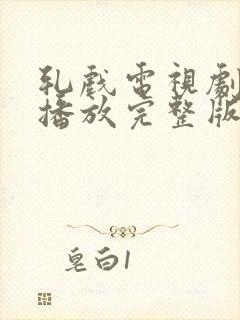 乳戲電視劇
播放完整版
皂白1